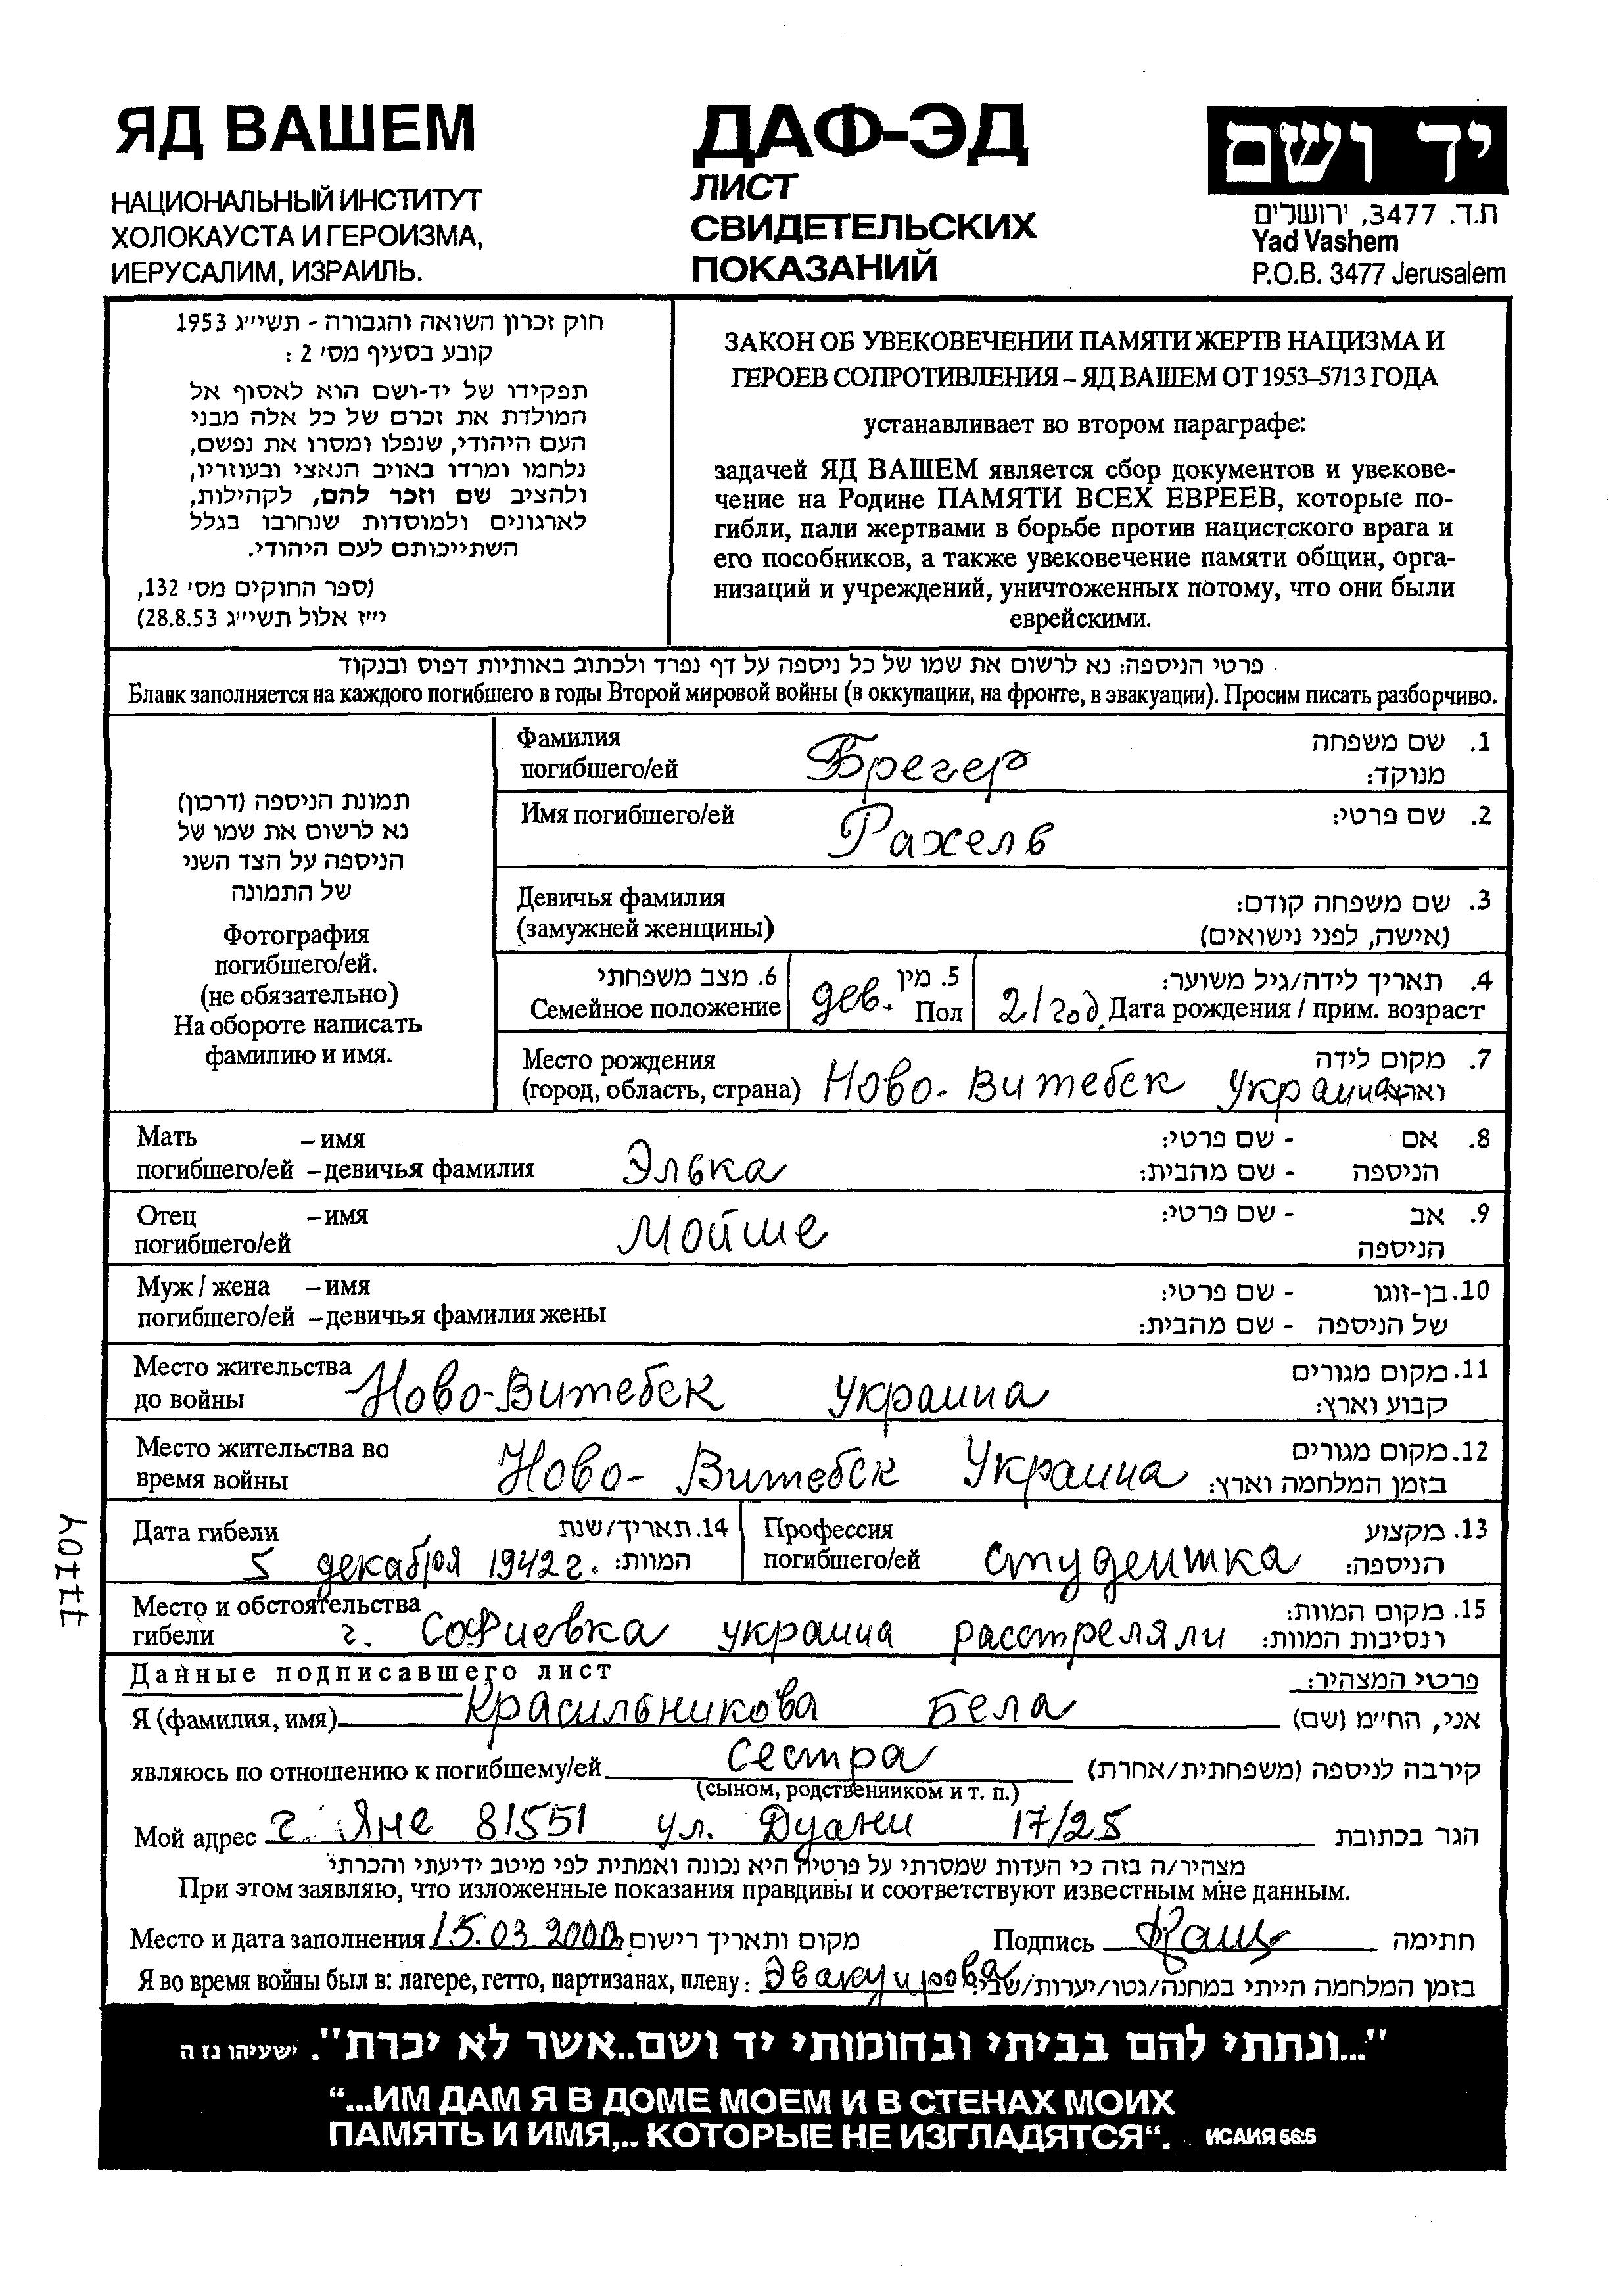 ЯД ВАШЕМ
НАЦИОНАЛЬНЫЙ ИНСТИТУТ
ХОЛОКАУСТА И ГЕРОИЗМА,
ИЕРУСАЛИМ, ИЗРАИЛЬ.
ДАФ-ЭД
ЛИСТ
СВИДЕТЕЛЬСКИХ
ПОКАЗАНИЙ
יד ושם
ת.ד. 3477, ירושלים
Yad Vashem
P.O.B. 3477 Jerusalem
חוק זכרון השואה והגבורה - תשי״ג 1953
קובע בסעיף מס׳ 2 :
תפקידו של יד-ושם הוא לאסוף אל
המולדת את זכרם של כל אלה מבני
העם היהודי, שנפלו ומסרו את נפשם,
נלחמו ומרדו באויב הנאצי ובעוזריו,
ולהציב שם וזכר להם, לקהילות,
לארגונים ולמוסדות שנחרבו בגלל
השתייכותם לעם היהודי.
(ספר החוקים מס׳ 132,
י״ז אלול תשי״ג 28.8.53)
ЗАКОН ОБ УВЕКОВЕЧЕНИИ ПАМЯТИ ЖЕРТВ НАЦИЗМА И
ГЕРОЕВ СОПРОТИВЛЕНИЯ – ЯД ВАШЕМ ОТ 1953–5713 ГОДА
устанавливает во втором параграфе:
задачей ЯД ВАШЕМ является сбор документов и увекове-
чение на Родине ПАМЯТИ ВСЕХ ЕВРЕЕВ, которые по-
гибли, пали жертвами в борьбе против нацистского врага и
его пособников, а также увековечение памяти общин, орга-
низаций и учреждений, уничтоженных потому, что они были
еврейскими.
פרטי הניספה: נא לרשום את שמו של כל ניספה על דף נפרד ולכתוב באותיות דפוס ובנקוד
Бланк заполняется на каждого погибшего в годы Второй мировой войны (в оккупации, на фронте, в эвакуации). Просим писать разборчиво.
תמונת הניספה (דרכון)
נא לרשום את שמו של
הניספה על הצד השני
של התמונה
Фотография
погибшего/ей.
(не обязательно)
На обороте написать
фамилию и имя.
Фамилия Брегер 1. שם משפחה
погибшего/ей מנוקד:
Имя погибшего/ей Рахель 2. שם פרטי:
Девичья фамилия 3. שם משפחה קודם:
(замужней женщины) (אישה, לפני נישואים)
6. מצב משפחתי 5. מין 4. תאריך לידה/גיל משוער:
Семейное положение дев. Пол 21 год. Дата рождения / прим. возраст
Место рождения 7. מקום לידה
(город, область, страна) Ново-Витебск Украина וארץ
Мать – имя - שם פרטי: 8. אם
погибшего/ей – девичья фамилия Элька - שם מהבית: הניספה
Отец – имя Мойше - שם פרטי: 9. אב
погибшего/ей הניספה
Муж / жена – имя - שם פרטי: 10. בן-זוגו
погибшего/ей – девичья фамилия жены - שם מהבית: של הניספה
Место жительства 11. מקום מגורים
до войны Ново-Витебск Украина קבוע וארץ:
Место жительства во 12. מקום מגורים
время войны Ново-Витебск Украина בזמן המלחמה וארץ:
Дата гибели 14. תאריך/שנת
5 декабря 1942 г. המוות:
Профессия 13. מקצוע
погибшего/ей студентка הניספה:
Место и обстоятельства 15. מקום המוות:
гибели г. Софиевка Украина расстреляли ונסיבות המוות:
Данные подписавшего лист פרטי המצהיר:
Я (фамилия, имя) Красильникова Бела אני, הח״מ (שם)
являюсь по отношению к погибшему/ей Сестра קירבה לניספה (משפחתית/אחרת)
(сыном, родственником и т. п.)
Мой адрес г. Яне 81551 ул. Дуани 17/25 הגר בכתובת
מצהיר/ה בזה כי העדות שמסרתי על פרטיה היא נכונה ואמתית לפי מיטב ידיעתי והכרתי
При этом заявляю, что изложенные показания правдивы и соответствуют известным мне данным.
Место и дата заполнения 15.03 2000 מקום ותאריך רישום Подпись חתימה
Я во время войны был в: лагере, гетто, партизанах, плену: Эвакуирова בזמן המלחמה הייתי במחנה/גטו/יערות/שבי:
"...ונתתי להם בביתי ובחומותי יד ושם..אשר לא יכרת". ישעיהו נז ה
“...ИМ ДАМ Я В ДОМЕ МОЕМ И В СТЕНАХ МОИХ
ПАМЯТЬ И ИМЯ,.. КОТОРЫЕ НЕ ИЗГЛАДЯТСЯ“. ИСАИЯ 56:5